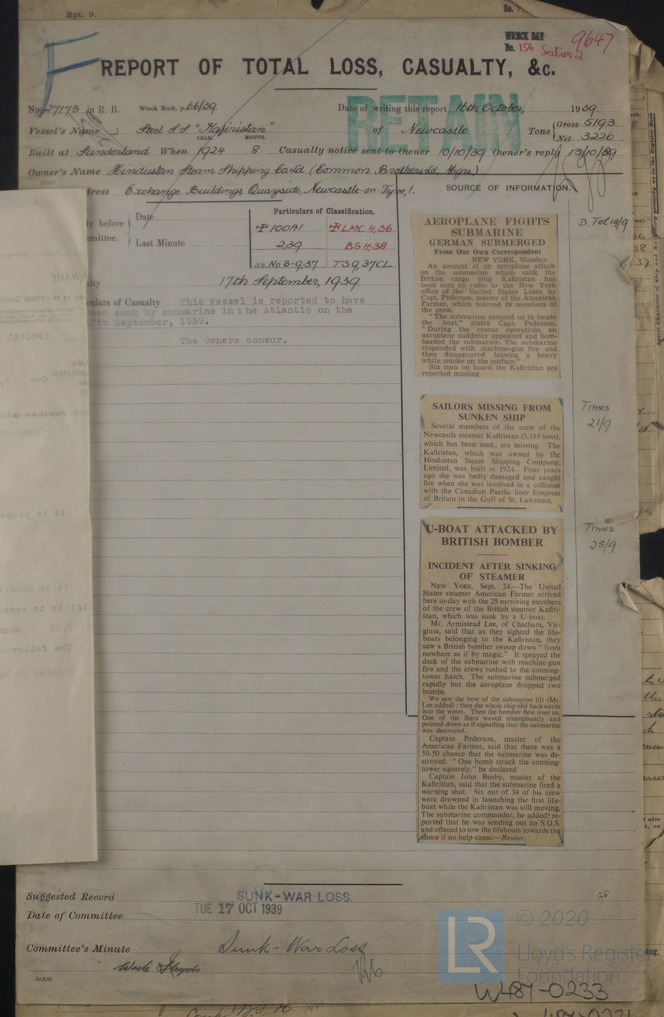 Rpt. 9.
No.
WRECK BAY
No. 156 Section 2
9647
REPORT OF TOTAL LOSS, CASUALTY, &c.
RETAIN
No. 27173 in R. B. Wreck Book, p. 66/39 Date of writing this report 16th October, 1939
Vessel's Name Steel S.S "Kafiristan" of Newcastle Tons { Gross 5193
Net 3226
YEAR. MONTH.
Built at Sunderland When 1924 8 Casualty notice sent to Owner 10/10/39 Owner's reply 13/10/39
Owner's Name Hindustan Steam Shipping Co. Ltd. (Common Brothers Ld. Mgrs)
ress Exchange Buildings Quayside, Newcastle-on-Tyne, 1.
SOURCE OF INFORMATION.
ly before
mmittee.
Date
Last Minute
Particulars of Classification.
100A1 LMC 4,36
2,39 BS 4,38
SS. No 3-9,37 TS 9,37 CL
lty 17th September, 1939.
culars of Casualty This vessel is reported to have
been sunk by submarine in the Atlantic on the
17th September, 1939.
The Owners concur.
D. Tel 19/9
AEROPLANE FIGHTS
SUBMARINE
GERMAN SUBMERGED
From Our Own Correspondent
NEW YORK, Monday.
An account of an aeroplane attack
on the submarine which sank the
British cargo ship Kafiristan has
been sent by radio to the New York
office of the United States Lines by
Capt. Pedersen, master of the American
Farmer, which rescued 29 members of
the crew.
"The submarine assisted us to locate
the boat," states Capt. Pedersen.
"During the rescue operations an
aeroplane suddenly appeared and bom-
barded the submarine. The submarine
responded with machine-gun fire and
then disappeared leaving a heavy
white smoke on the surface."
Six men on board the Kafiristan are
reported missing.
Times
21/9
SAILORS MISSING FROM
SUNKEN SHIP
Several members of the crew of the
Newcastle steamer Kafiristan (5,193 tons),
which has been sunk, are missing. The
Kafiristan, which was owned by the
Hindustan Steam Shipping Company,
Limited, was built in 1924. Four years
ago she was badly damaged and caught
fire when she was involved in a collision
with the Canadian Pacific liner Empress
of Britain in the Gulf of St. Lawrence.
Times
25/9
U-BOAT ATTACKED BY
BRITISH BOMBER
INCIDENT AFTER SINKING
OF STEAMER
NEW YORK, Sept. 24.—The United
States steamer American Farmer arrived
here to-day with the 29 surviving members
of the crew of the British steamer Kafiri-
stan, which was sunk by a U-boat.
Mr. Armistead Lee, of Chatham, Vir-
ginia, said that as they sighted the life-
boats belonging to the Kafiristan, they
saw a British bomber swoop down "from
nowhere as if by magic." It sprayed the
deck of the submarine with machine-gun
fire and the crews rushed to the conning-
tower hatch. The submarine submerged
rapidly but the aeroplane dropped two
bombs.
We saw the bow of the submarine lift (Mr.
Lee added); then the whole ship slid backwards
into the water. Then the bomber flew over us.
One of the fliers waved triumphantly and
pointed down as if signalling that the submarine
was destroyed.
Captain Pederson, master of the
American Farmer, said that there was a
50-50 chance that the submarine was de-
stroyed. "One bomb struck the conning-
tower squarely," he declared.
Captain John Busby, master of the
Kafiristan, said that the submarine fired a
warning shot. Six out of 34 of his crew
were drowned in launching the first life-
boat while the Kafiristan was still moving.
The submarine commander, he added, re-
ported that he was sending out an S.O.S.
and offered to tow the lifeboats towards the
shore if no help came.—Reuter.
Suggested Record SUNK-WAR LOSS.
Date of Committee TUE 17 OCT 1939
Committee's Minute Sunk - War Loss
Write Lloyds
LR
© 2020
Lloyd's Register
Foundation
W484-0233